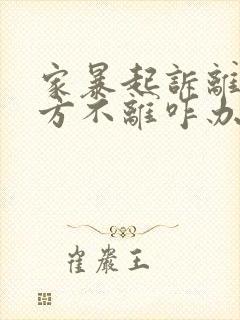 家暴起訴離
方不離咋办
崔嚴王